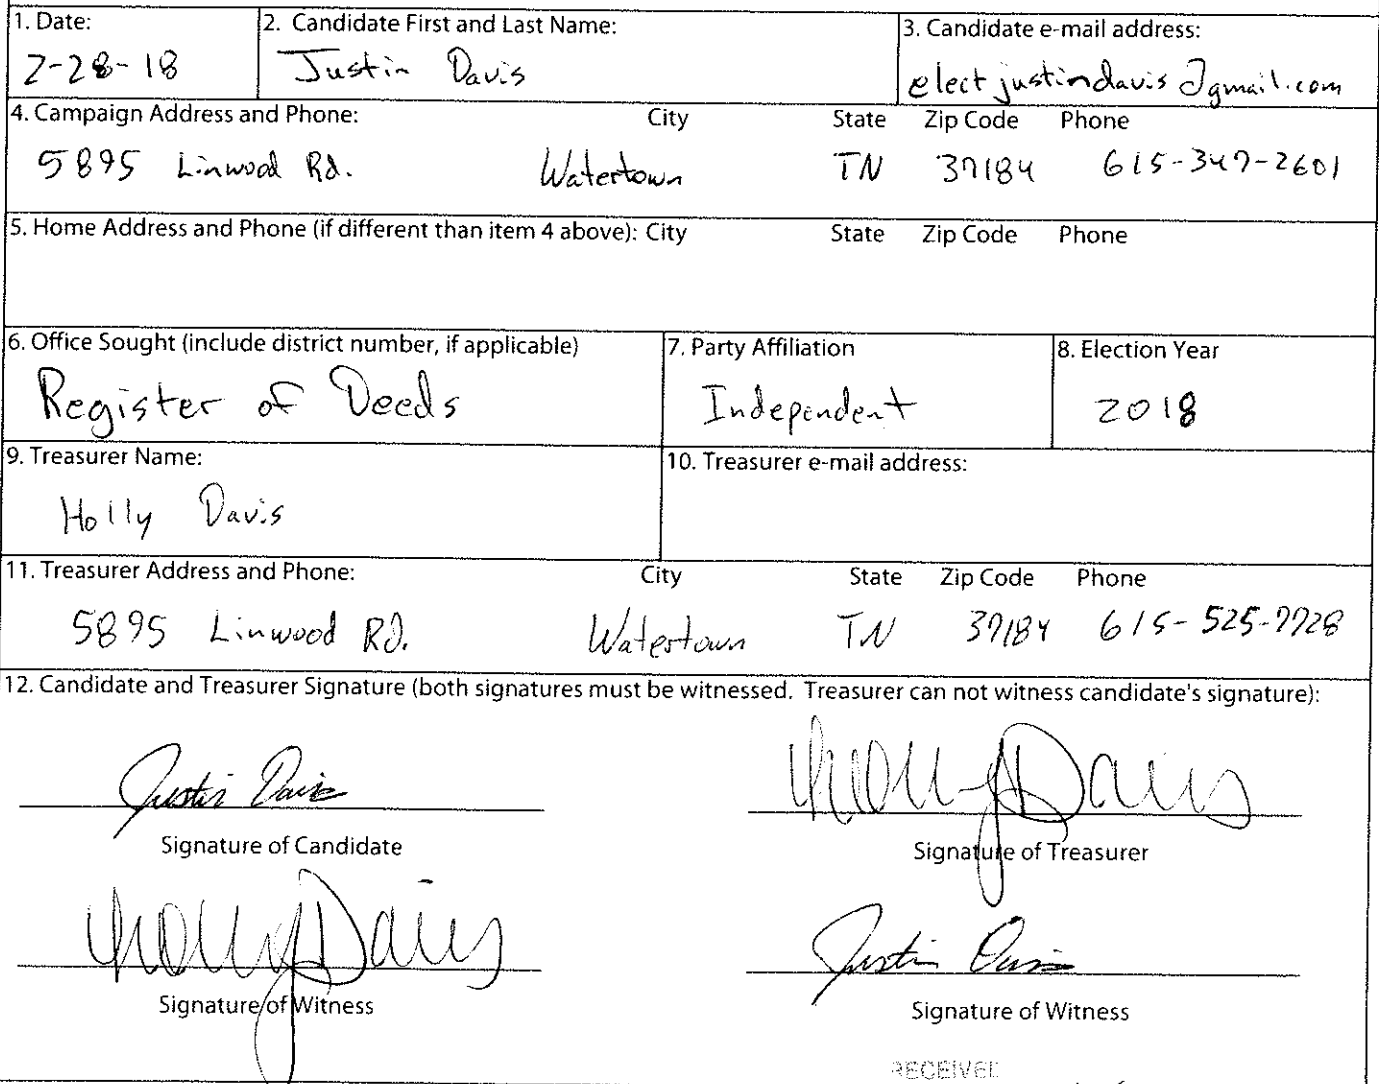 1. Date: 2. Candidate First and Last Name: 3. Candidate e-mail address:
2-28-18 Justin Davis electjustindavis@gmail.com
4. Campaign Address and Phone: City State Zip Code Phone
5895 Linwood Rd. Watertown TN 37184 615-347-2601
5. Home Address and Phone (if different than item 4 above): City State Zip Code Phone
6. Office Sought (include district number, if applicable) 7. Party Affiliation 8. Election Year
Register of Deeds Independent 2018
9. Treasurer Name: 10. Treasurer e-mail address:
Holly Davis
11. Treasurer Address and Phone: City State Zip Code Phone
5895 Linwood Rd. Watertown TN 37184 615-525-7728
12. Candidate and Treasurer Signature (both signatures must be witnessed. Treasurer can not witness candidate's signature):
Justin Davis Holly Davis
Signature of Candidate Signature of Treasurer
Holly Davis Justin Davis
Signature of Witness Signature of Witness
RECEIVED